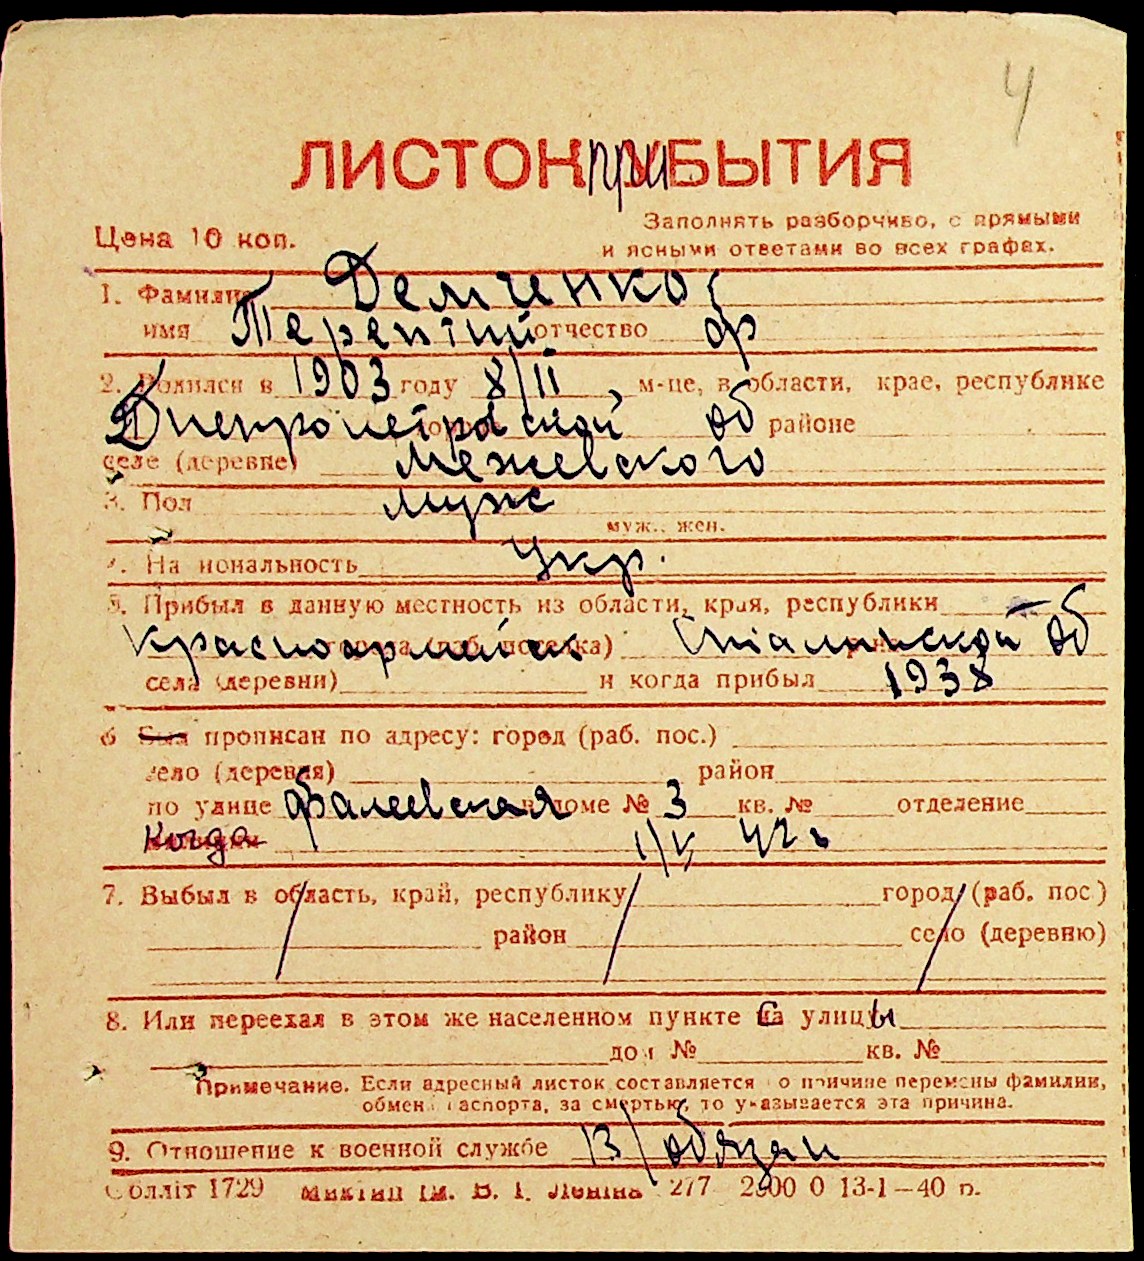 4
ЛИСТОК ПРИБЫТИЯ
Цена 10 коп.
Заполнять разборчиво, с прямыми
и ясными ответами во всех графах.
1. Фамилия Демченко
имя Терентий отчество Ф
2. Родился в 1903 году 8/II м-це, в области, крае, республике
Днепропетровской об районе
селе (деревне) Межевского
3. Пол муж
муж., жен.
4. Национальность укр.
5. Прибыл в данную местность из области, края, республики
Красноармейск Сталинской об
села (деревни) и когда прибыл 1938
6 Был прописан по адресу: город (раб. пос.)
село (деревня) район
по улице Фалеевская в доме № 3 кв. № отделение
Когда 1/V 42 г
7. Выбыл в область, край, республику город (раб. пос.)
район село (деревню)
8. Или переехал в этом же населенном пункте с улицы
дом № кв. №
Примечание. Если адресный листок составляется по причине перемены фамилии,
обмена паспорта, за смертью, то указывается эта причина.
9. Отношение к военной службе В/обязан
Облліт 1729 Миктип ім. В. І. Леніна 277 2900 0 13-1—40 п.